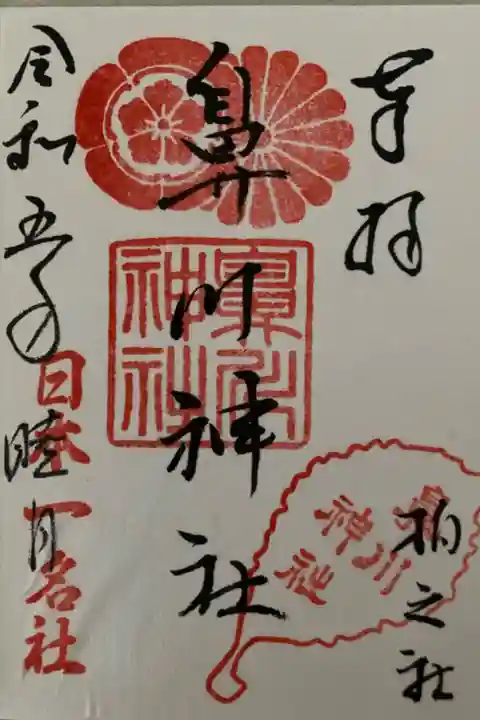 奉拝
鼻川神社
鼻川神社
令和五年
睦月
日本一名社
鼻川神社
柏之社